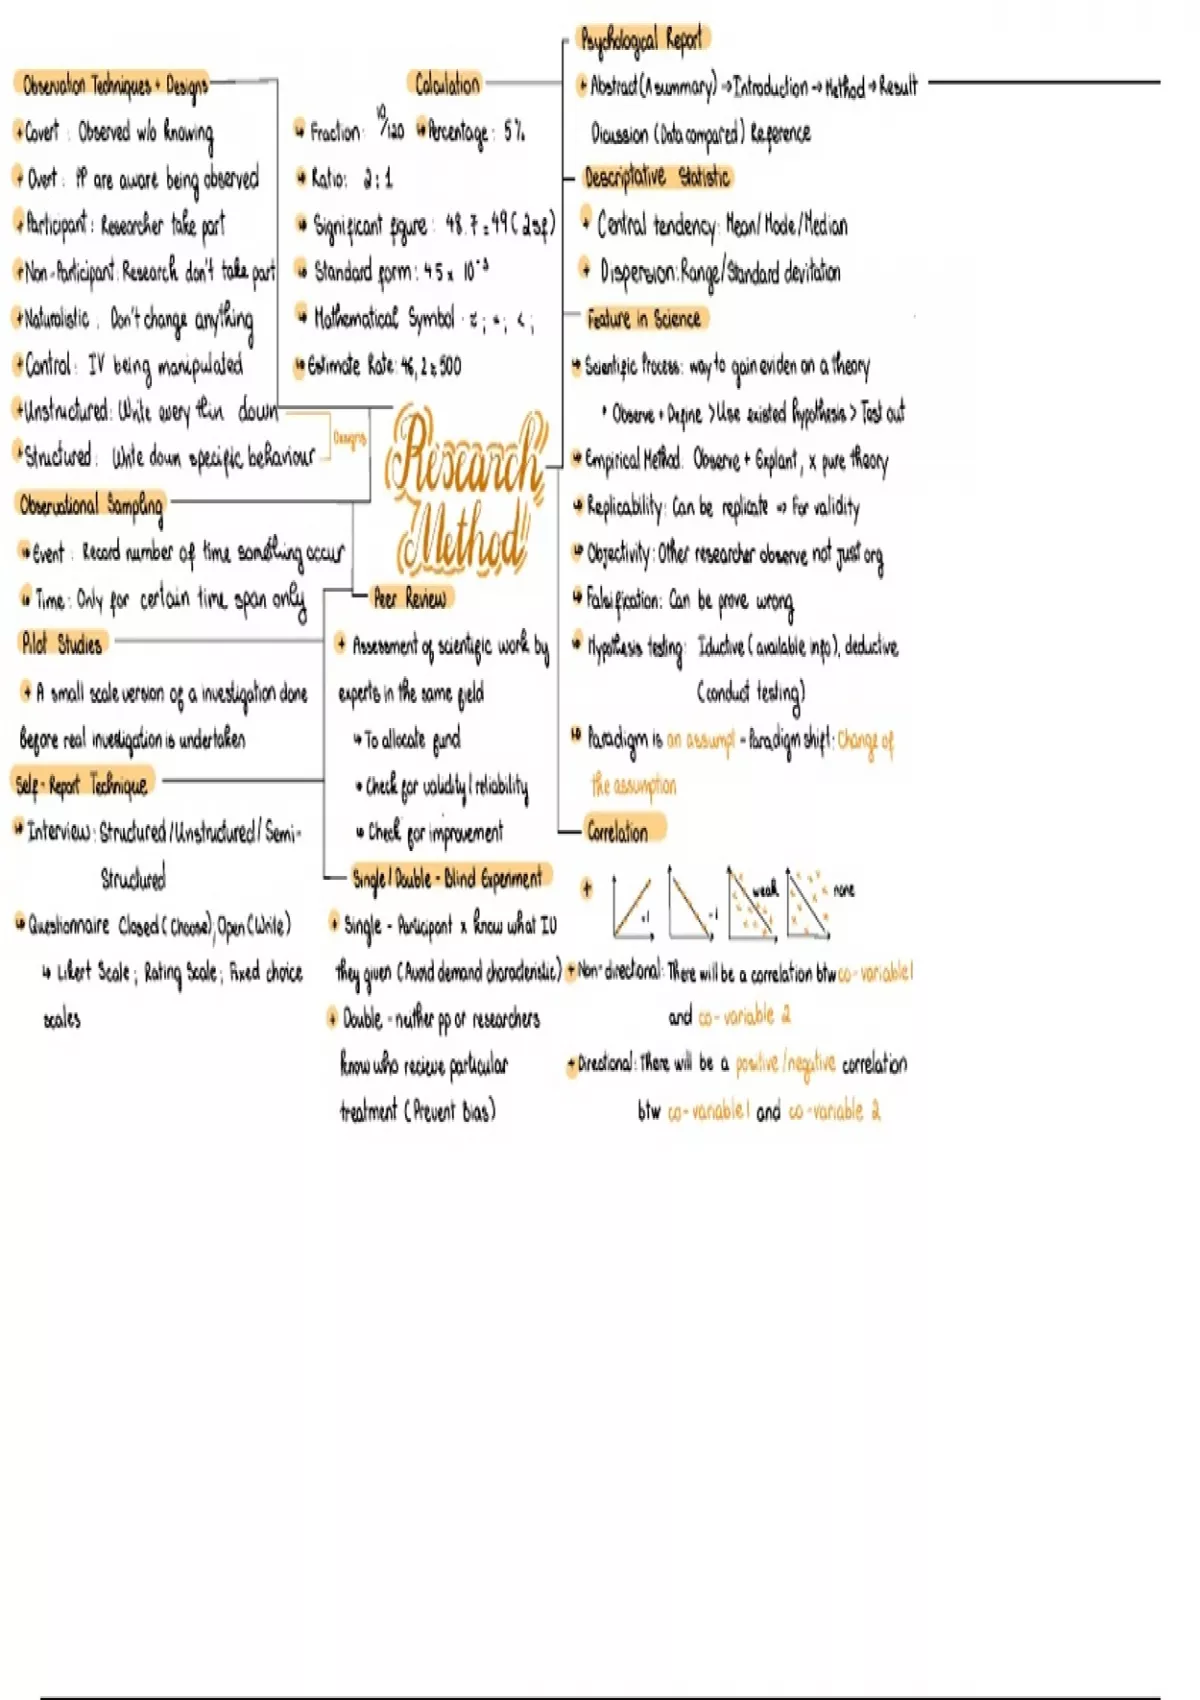 Observation Techniques + Designs
+Covert : Observed w/o knowing
+ Overt : PP are aware being observed
+Participant : Researcher take part
+Non-Participant: Research don't take part
+Naturalistic . Don't change anything
+Control : IV being manipulated
+Unstructured: Write every thin down
+Structured : Write down specific behaviour
Designs
Observational Sampling
↳ Event : Record number of time something occur
↳ Time : Only for certain time span only
Pilot Studies
+ A small scale version of a investigation done
Before real investigation is undertaken
Self-Report Technique
↳ Interview : Structured / Unstructured / Semi-
Structured
↳ Questionnaire Closed (Choose), Open (Write)
↳ Likert Scale ; Rating Scale ; Fixed choice
scales
Calculation
↳ Fraction : 10/120 ↳ Percentage : 5%
↳ Ratio : 2 : 1
↳ Significant figure : 48.7 = 49 (2sf)
↳ Standard form : 4.5 x 10⁻³
↳ Mathematical Symbol
↳ Estimate Rate:
Research
Method
Peer Review
+ Assessment of scientific work by
experts in the same field
↳ To allocate fund
• Check for validity / reliability
↳ Check for improvement
Single / Double - Blind Experiment
+ Single - Participant x know what IV
they given (Avoid demand characteristic)
+ Double - neither pp or researchers
know who recieve particular
treatment (Prevent Bias)
Psychological Report
+ Abstract (A summary) → Introduction → Method → Result
Dicussion (Data compared) Reference
Descriptative Statistic
+ Central tendency: Mean/Mode/Median
+ Dispersion: Range/Standard devitation
Feature in Science
↳ Scientific Process : way to gain eviden on a theory
• Observe + Define > Use existed hypothesis > Test out
↳ Empirical Method : Observe + Explant, x pure theory
↳ Replicability : Can be replicate → For validity
↳ Objectivity : Other researcher observe not just org
↳ Falsification : Can be prove wrong
↳ Hypothesis testing : Iductive (available info), deductive
(conduct testing)
↳ Paradigm is an assumpt - Paradigm shift : Change of
the assumption
Correlation
+ +1 -1 weak none
+ Non-directional : There will be a correlation btw co-variable 1
and co-variable 2
+ Directional : There will be a positive / negative correlation
btw co-variable 1 and co-variable 2